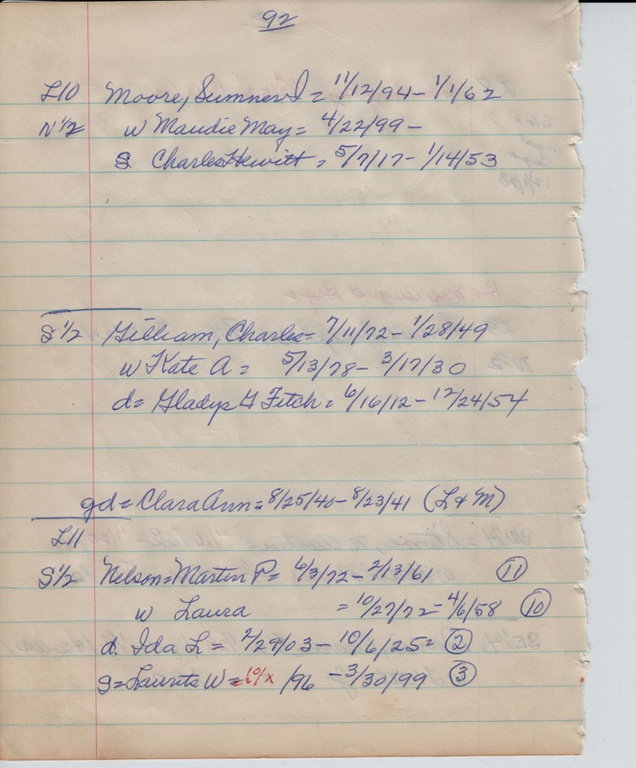 92
L10 Moore, Sumner I = 11/12/94 - 1/1/62
N 1/2 w Maudie May = 4/22/99 -
S Charles Hewitt = 5/7/17 - 1/14/53
S 1/2 Gilliam, Charles = 7/11/72 - 1/28/49
w Kate A = 5/13/78 - 3/17/30
d = Gladys G Fitch = 6/16/12 - 12/24/54
gd = Clara Ann = 8/25/40 - 8/23/41 (L & M)
L11
S 1/2 Nelson = Martin P = 6/3/72 - 2/13/61 (11)
w Laura = 10/27/72 = 4/6/58 (10)
d. Ida L = 2/29/03 - 10/6/25 = (2)
S = Lauritz W = 10/x /96 - 3/30/99 (3)